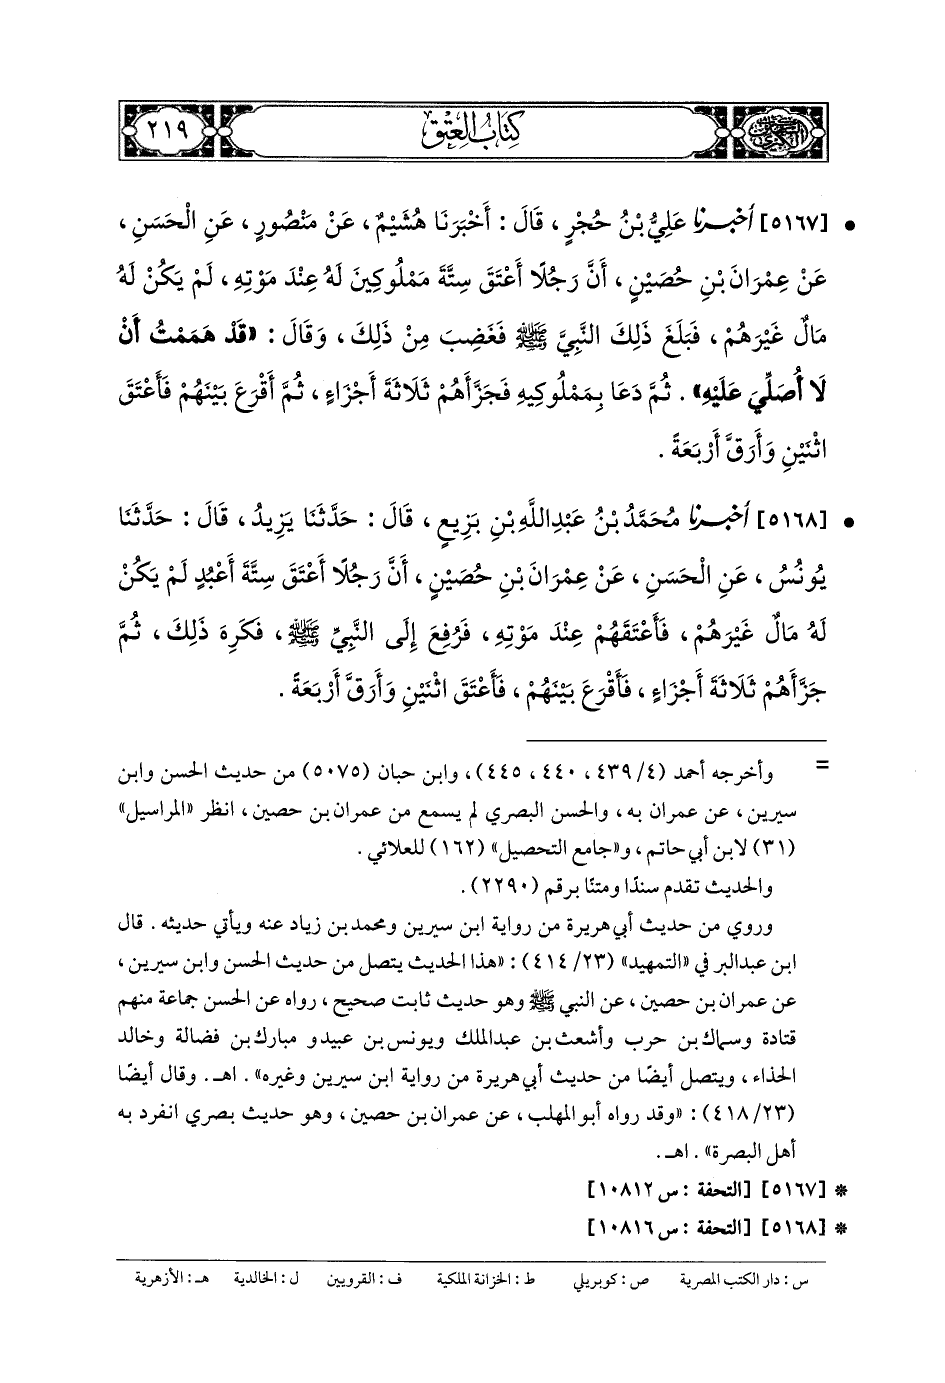 كتاب العتق
٢١٩
• [٥١٦٧] أخبرنا عَلِيُّ بْنُ حُجْرٍ، قَالَ: أَخْبَرَنَا هُشَيْمٌ، عَنْ مَنْصُورٍ، عَنِ الْحَسَنِ،
عَنْ عِمْرَانَ بْنِ حُصَيْنٍ، أَنَّ رَجُلًا أَعْتَقَ سِتَّةً مَمْلُوكِينَ لَهُ عِنْدَ مَوْتِهِ، لَمْ يَكُنْ لَهُ
مَالٌ غَيْرَهُمْ، فَبَلَغَ ذَلِكَ النَّبِيَّ ﷺ فَغَضِبَ مِنْ ذَلِكَ، وَقَالَ: «قَدْ هَمَمْتُ أَنْ
لَا أُصَلِّيَ عَلَيْهِ». ثُمَّ دَعَا بِمَمْلُوكِيهِ فَجَزَّأَهُمْ ثَلَاثَةَ أَجْزَاءٍ، ثُمَّ أَقْرَعَ بَيْنَهُمْ فَأَعْتَقَ
اثْنَيْنِ وَأَرَقَّ أَرْبَعَةً.
• [٥١٦٨] أخبرنا مُحَمَّدُ بْنُ عَبْدِاللَّهِ بْنِ بَزِيعٍ، قَالَ: حَدَّثَنَا يَزِيدُ، قَالَ: حَدَّثَنَا
يُونُسُ، عَنِ الْحَسَنِ، عَنْ عِمْرَانَ بْنِ حُصَيْنٍ، أَنَّ رَجُلًا أَعْتَقَ سِتَّةَ أَعْبُدٍ لَمْ يَكُنْ
لَهُ مَالٌ غَيْرَهُمْ، فَأَعْتَقَهُمْ عِنْدَ مَوْتِهِ، فَرُفِعَ إِلَى النَّبِيِّ ﷺ، فَكَرِهَ ذَلِكَ، ثُمَّ
جَزَّأَهُمْ ثَلَاثَةَ أَجْزَاءٍ، فَأَقْرَعَ بَيْنَهُمْ، فَأَعْتَقَ اثْنَيْنِ وَأَرَقَّ أَرْبَعَةً.
= وأخرجه أحمد (٤/ ٤٣٩، ٤٤٠، ٤٤٥)، وابن حبان (٥٠٧٥) من حديث الحسن وابن
سيرين، عن عمران به، والحسن البصري لم يسمع من عمران بن حصين، انظر «المراسيل»
(٣١) لابن أبي حاتم، و«جامع التحصيل» (١٦٢) للعلائي.
والحديث تقدم سندًا ومتنًا برقم (٢٢٩٠).
وروي من حديث أبي هريرة من رواية ابن سيرين ومحمد بن زياد عنه ويأتي حديثه. قال
ابن عبدالبر في «التمهيد» (٢٣/ ٤١٤): «هذا الحديث يتصل من حديث الحسن وابن سيرين،
عن عمران بن حصين، عن النبي ﷺ وهو حديث ثابت صحيح، رواه عن الحسن جماعة منهم
قتادة وسماك بن حرب وأشعث بن عبدالملك ويونس بن عبيد و مبارك بن فضالة وخالد
الحذاء، ويتصل أيضًا من حديث أبي هريرة من رواية ابن سيرين وغيره». اهـ. وقال أيضًا
(٢٣/ ٤١٨): «وقد رواه أبو المهلب، عن عمران بن حصين، وهو حديث بصري انفرد به
أهل البصرة». اهـ.
* [٥١٦٧] [التحفة: س ١٠٨١٢]
* [٥١٦٨] [التحفة: س ١٠٨١٦]
س: دار الكتب المصرية ص: كوبريلي ط: الخزانة الملكية ف: القرويين ل: الخالدية هـ: الأزهرية